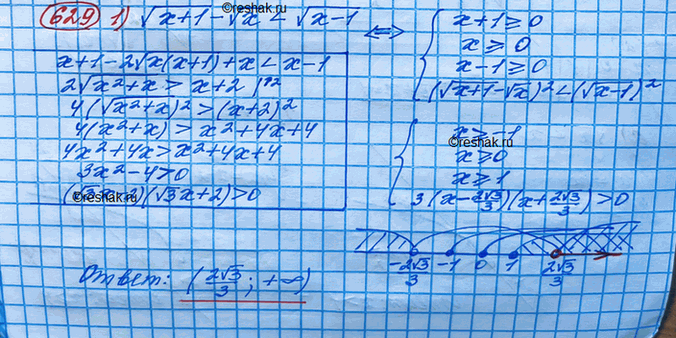 629 1) √x+1 - √x < √x-1 ⟺ { x+1 ≥ 0
x ≥ 0
x-1 ≥ 0
(√x+1 - √x)² < (√x-1)²
x+1-2√x(x+1) + x < x-1
2√x²+x > x+2 |↑2
4(√x²+x)² > (x+2)²
4(x²+x) > x²+4x+4
4x²+4x > x²+4x+4
3x²-4>0
(√3x-2)(√3x+2)>0
{ x ≥ -1
x ≥ 0
x ≥ 1
3(x - 2√3/3)(x + 2√3/3) > 0
-2√3/3 -1 0 1 2√3/3
Ответ: (2√3/3; +∞)
©reshak.ru
©reshak.ru
©reshak.ru